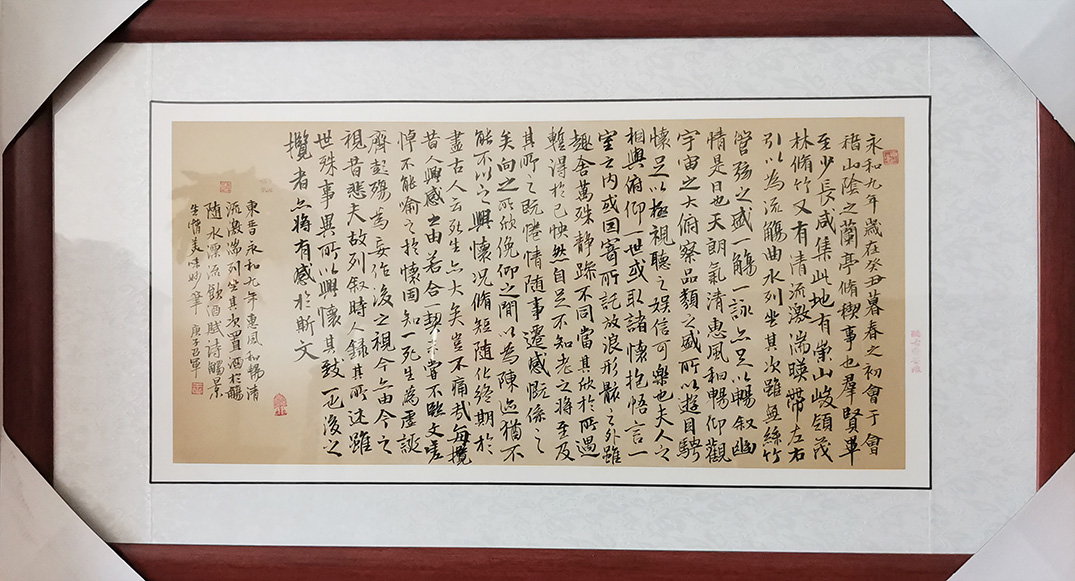 永和九年歲在癸丑暮春之初會于會
稽山陰之蘭亭脩禊事也羣賢畢
至少長咸集此地有崇山峻領茂
林脩竹又有清流激湍暎帶左右
引以為流觴曲水列坐其次雖無絲竹
管弦之盛一觴一詠亦足以暢叙幽
情是日也天朗氣清惠風和暢仰觀
宇宙之大俯察品類之盛所以遊目騁
懷足以極視聽之娛信可樂也夫人之
相與俯仰一世或取諸懷抱悟言一
室之内或因寄所託放浪形骸之外雖
趣舍萬殊静躁不同當其欣於所遇
暫得於己怏然自足不知老之將至及
其所之既惓情隨事遷感慨係之
矣向之所欣俛仰之間以為陳迹猶不
能不以之興懷況脩短隨化終期於
盡古人云死生亦大矣豈不痛哉每攬
昔人興感之由若合一契未嘗不臨文嗟
悼不能喻之於懷固知一死生為虛誕
齊彭殤為妄作後之視今亦由今之
視昔悲夫故列叙時人錄其所述雖
世殊事異所以興懷其致一也後之
攬者亦將有感於斯文
東晉永和九年惠風和暢清
流激湍列坐其次置酒於觴
随水漂流飲酒賦詩觴景
生情美味妙筆 庚子召軍